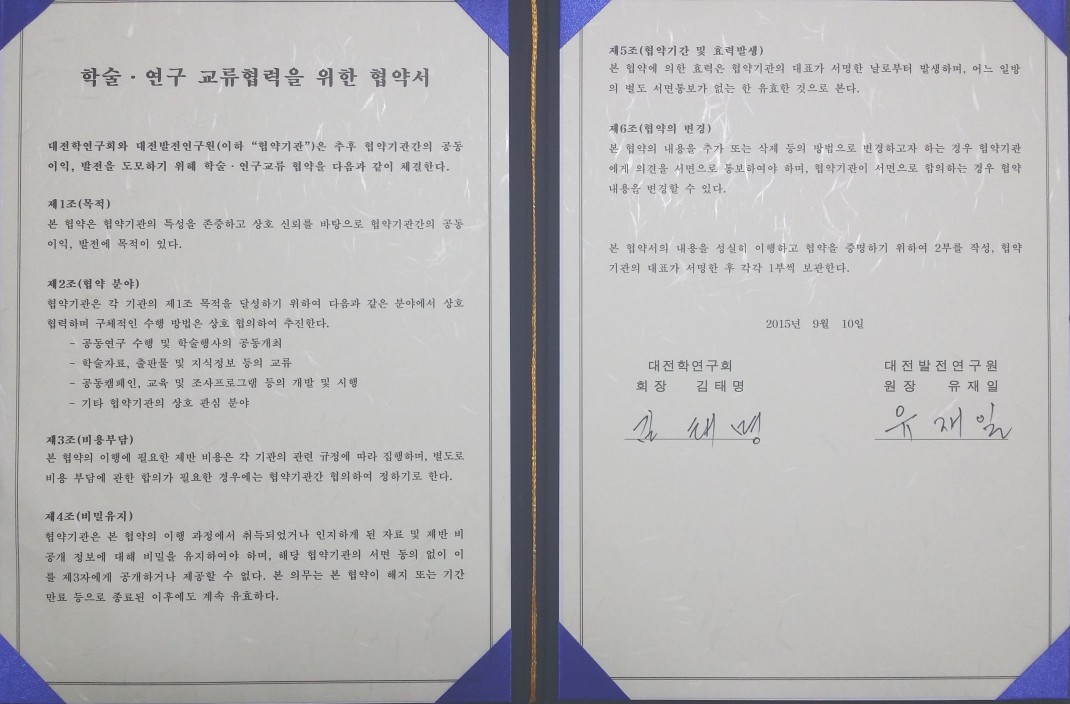 학술 · 연구 교류협력을 위한 협약서
대전학연구회와 대전발전연구원(이하 “협약기관”)은 추후 협약기관간의 공동
이익, 발전을 도모하기 위해 학술 · 연구교류 협약을 다음과 같이 체결한다.
제1조(목적)
본 협약은 협약기관의 특성을 존중하고 상호 신뢰를 바탕으로 협약기관간의 공동
이익, 발전에 목적이 있다.
제2조(협약 분야)
협약기관은 각 기관의 제1조 목적을 달성하기 위하여 다음과 같은 분야에서 상호
협력하며 구체적인 수행 방법은 상호 협의하여 추진한다.
- 공동연구 수행 및 학술행사의 공동개최
- 학술자료, 출판물 및 지식정보 등의 교류
- 공동캠페인, 교육 및 조사프로그램 등의 개발 및 시행
- 기타 협약기관의 상호 관심 분야
제3조(비용부담)
본 협약의 이행에 필요한 제반 비용은 각 기관의 관련 규정에 따라 집행하며, 별도로
비용 부담에 관한 합의가 필요한 경우에는 협약기관간 협의하여 정하기로 한다.
제4조(비밀유지)
협약기관은 본 협약의 이행 과정에서 취득되었거나 인지하게 된 자료 및 제반 비
공개 정보에 대해 비밀을 유지하여야 하며, 해당 협약기관의 서면 동의 없이 이
를 제3자에게 공개하거나 제공할 수 없다. 본 의무는 본 협약이 해지 또는 기간
만료 등으로 종료된 이후에도 계속 유효하다.
제5조(협약기간 및 효력발생)
본 협약에 의한 효력은 협약기관의 대표가 서명한 날로부터 발생하며, 어느 일방
의 별도 서면통보가 없는 한 유효한 것으로 본다.
제6조(협약의 변경)
본 협약의 내용을 추가 또는 삭제 등의 방법으로 변경하고자 하는 경우 협약기관
에게 의견을 서면으로 통보하여야 하며, 협약기관이 서면으로 합의하는 경우 협약
내용을 변경할 수 있다.
본 협약서의 내용을 성실히 이행하고 협약을 증명하기 위하여 2부를 작성, 협약
기관의 대표가 서명한 후 각각 1부씩 보관한다.
2015년 9월 10일
대전학연구회
회장 김태명
김태명
대전발전연구원
원장 유재일
유재일